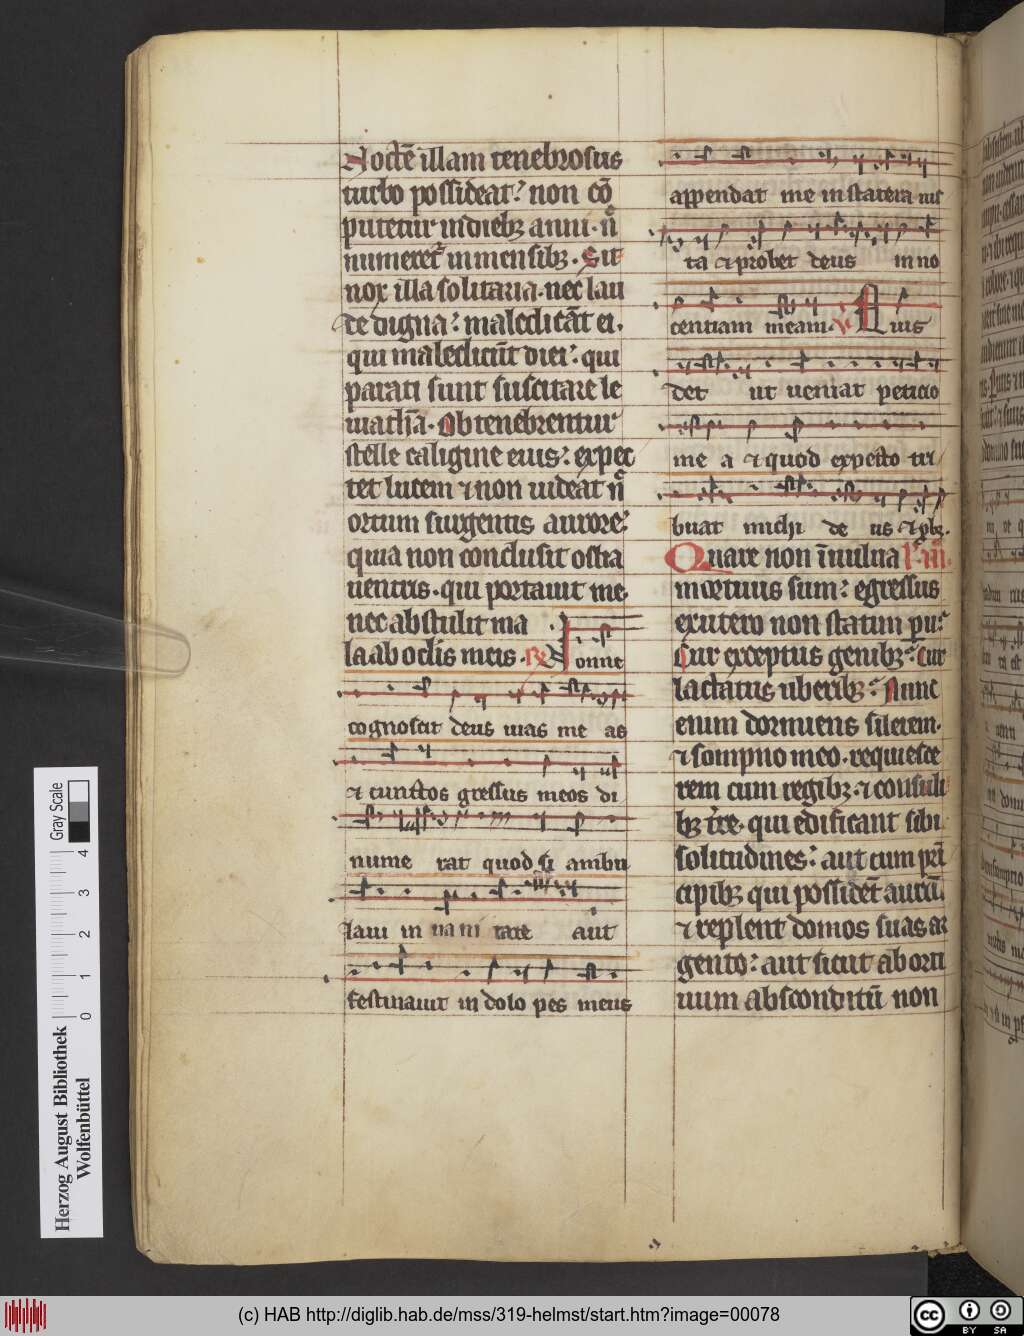 Noctē illam tenebrosus
turbo possideat: non cō
putetur in diebꝫ anni. n̄
numeret᷑ in mensibꝫ. Sit
nox illa solitaria. nec lau
de digna: maledicāt ei.
qui maledicūt diei: qui
parati sunt suscitare le
uiathā. Obtenebrentur
stelle caligine eius: expec
tet lucem ⁊ non uideat n̄
ortum surgentis aurore:
quia non conclusit ostia
uentris. qui portauit me
nec abstulit ma
la ab oclis meis. ℟ Nonne
cognoscit deus uias me as
et cunctos gressus meos di
nume rat quod si ambu
laui in ua ni tate aut
festinauit in dolo pes meus
appendat me in statera ius
ta et probet deus in no
centiam meam. V Quis
det ut ueniat peticio
me a et quod expecto tri
buat michi de us
Quare non ī uulua
mortuus sum: egressus
ex utero non statim p̲ii:
Cur exceptus genibꝫ: cur
lactatus uberibꝫ: Nunc
enim dormiens silerem.
⁊ sompno meo. requiesce
rem cum regibꝫ. ⁊ consuli
bꝫ t̄re. qui edificant sibi
solitudines: aut cum prī
cipibꝫ qui possidēt aurū
⁊ replent domos suas ar
gento: aut sicut aborti
uum absconditū non
Herzog August Bibliothek
Wolfenbüttel
0 1 2 3 4
Gray Scale
(c) HAB http://diglib.hab.de/mss/319-helmst/start.htm?image=00078
cc BY SA